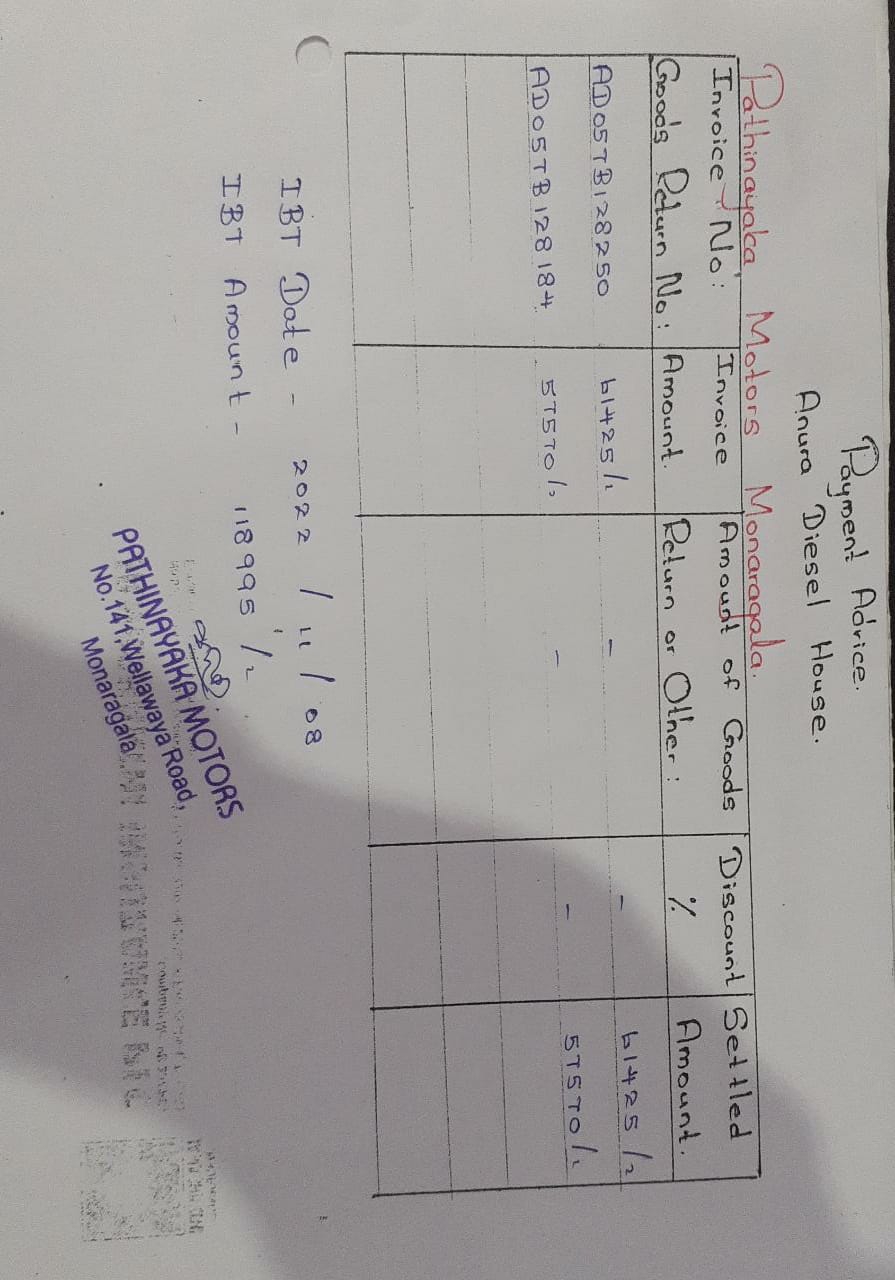 Payment Advice.
Anura Diesel House.
Pathinayaka Motors Monaragala.
Invoice No: Invoice Amount of Goods Discount Settled
Goods Return No: Amount. Return or Other: % Amount.
AD05TB128250 61425/= - - 61425/=
AD05TB128184 57570/= - - 57570/=
IBT Date - 2022/11/08
IBT Amount - 118995/=
PATHINAYAKA MOTORS
No.141, Wellawaya Road,
Monaragala